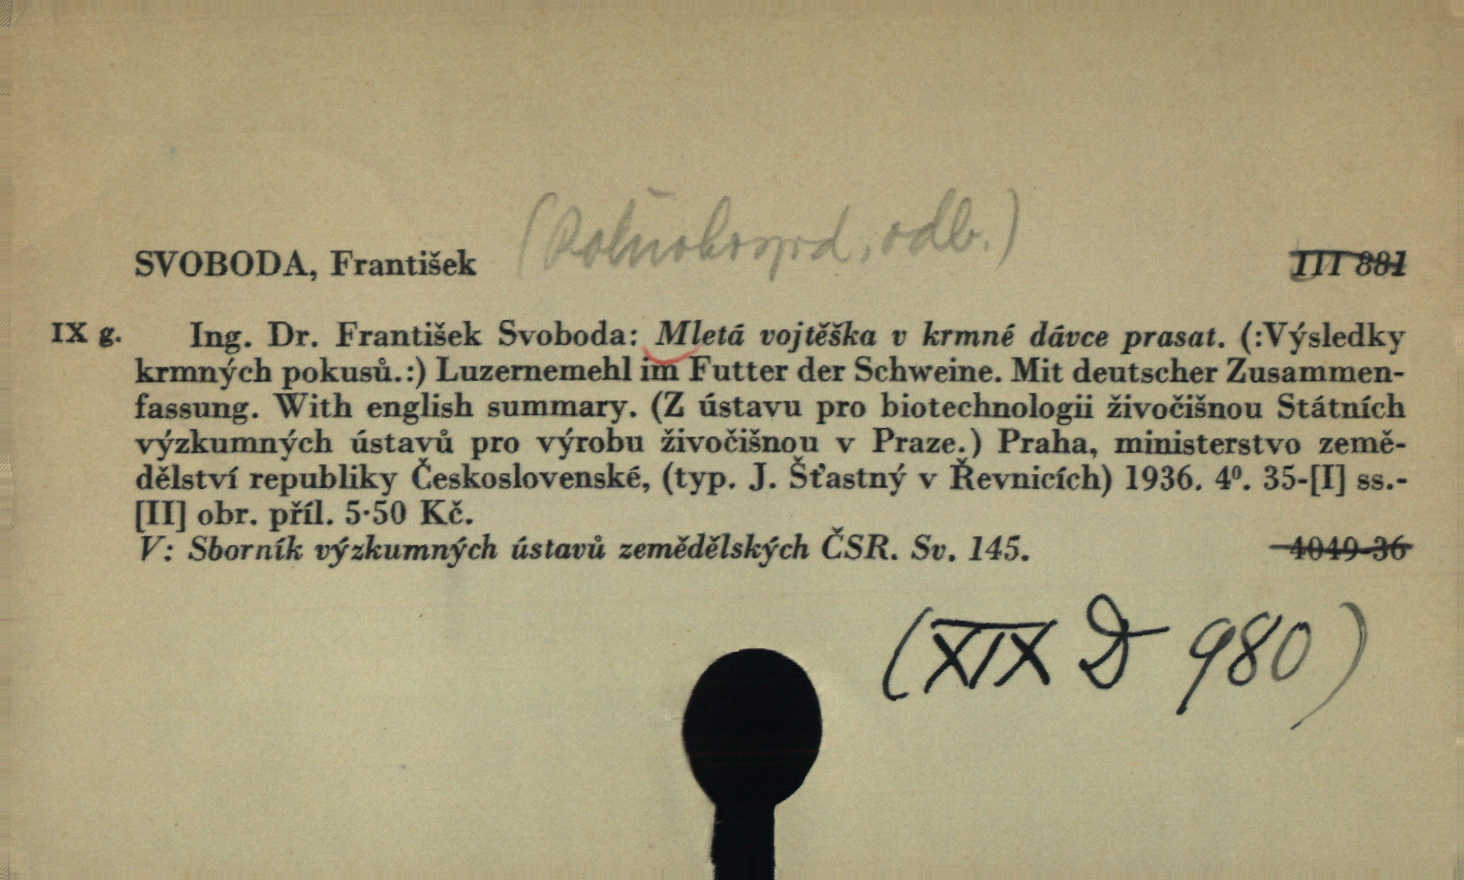 (Rolnohospod. odb.)
SVOBODA, František III 881
IX g. Ing. Dr. František Svoboda: Mletá vojtěška v krmné dávce prasat. (:Výsledky
krmných pokusů.:) Luzernemehl im Futter der Schweine. Mit deutscher Zusammen-
fassung. With english summary. (Z ústavu pro biotechnologii živočišnou Státních
výzkumných ústavů pro výrobu živočišnou v Praze.) Praha, ministerstvo země-
dělství republiky Československé, (typ. J. Šťastný v Řevnicích) 1936. 4⁰. 35-[I] ss.-
[II] obr. příl. 5·50 Kč.
V: Sborník výzkumných ústavů zemědělských ČSR. Sv. 145. 4049-36
(XIX D 980)